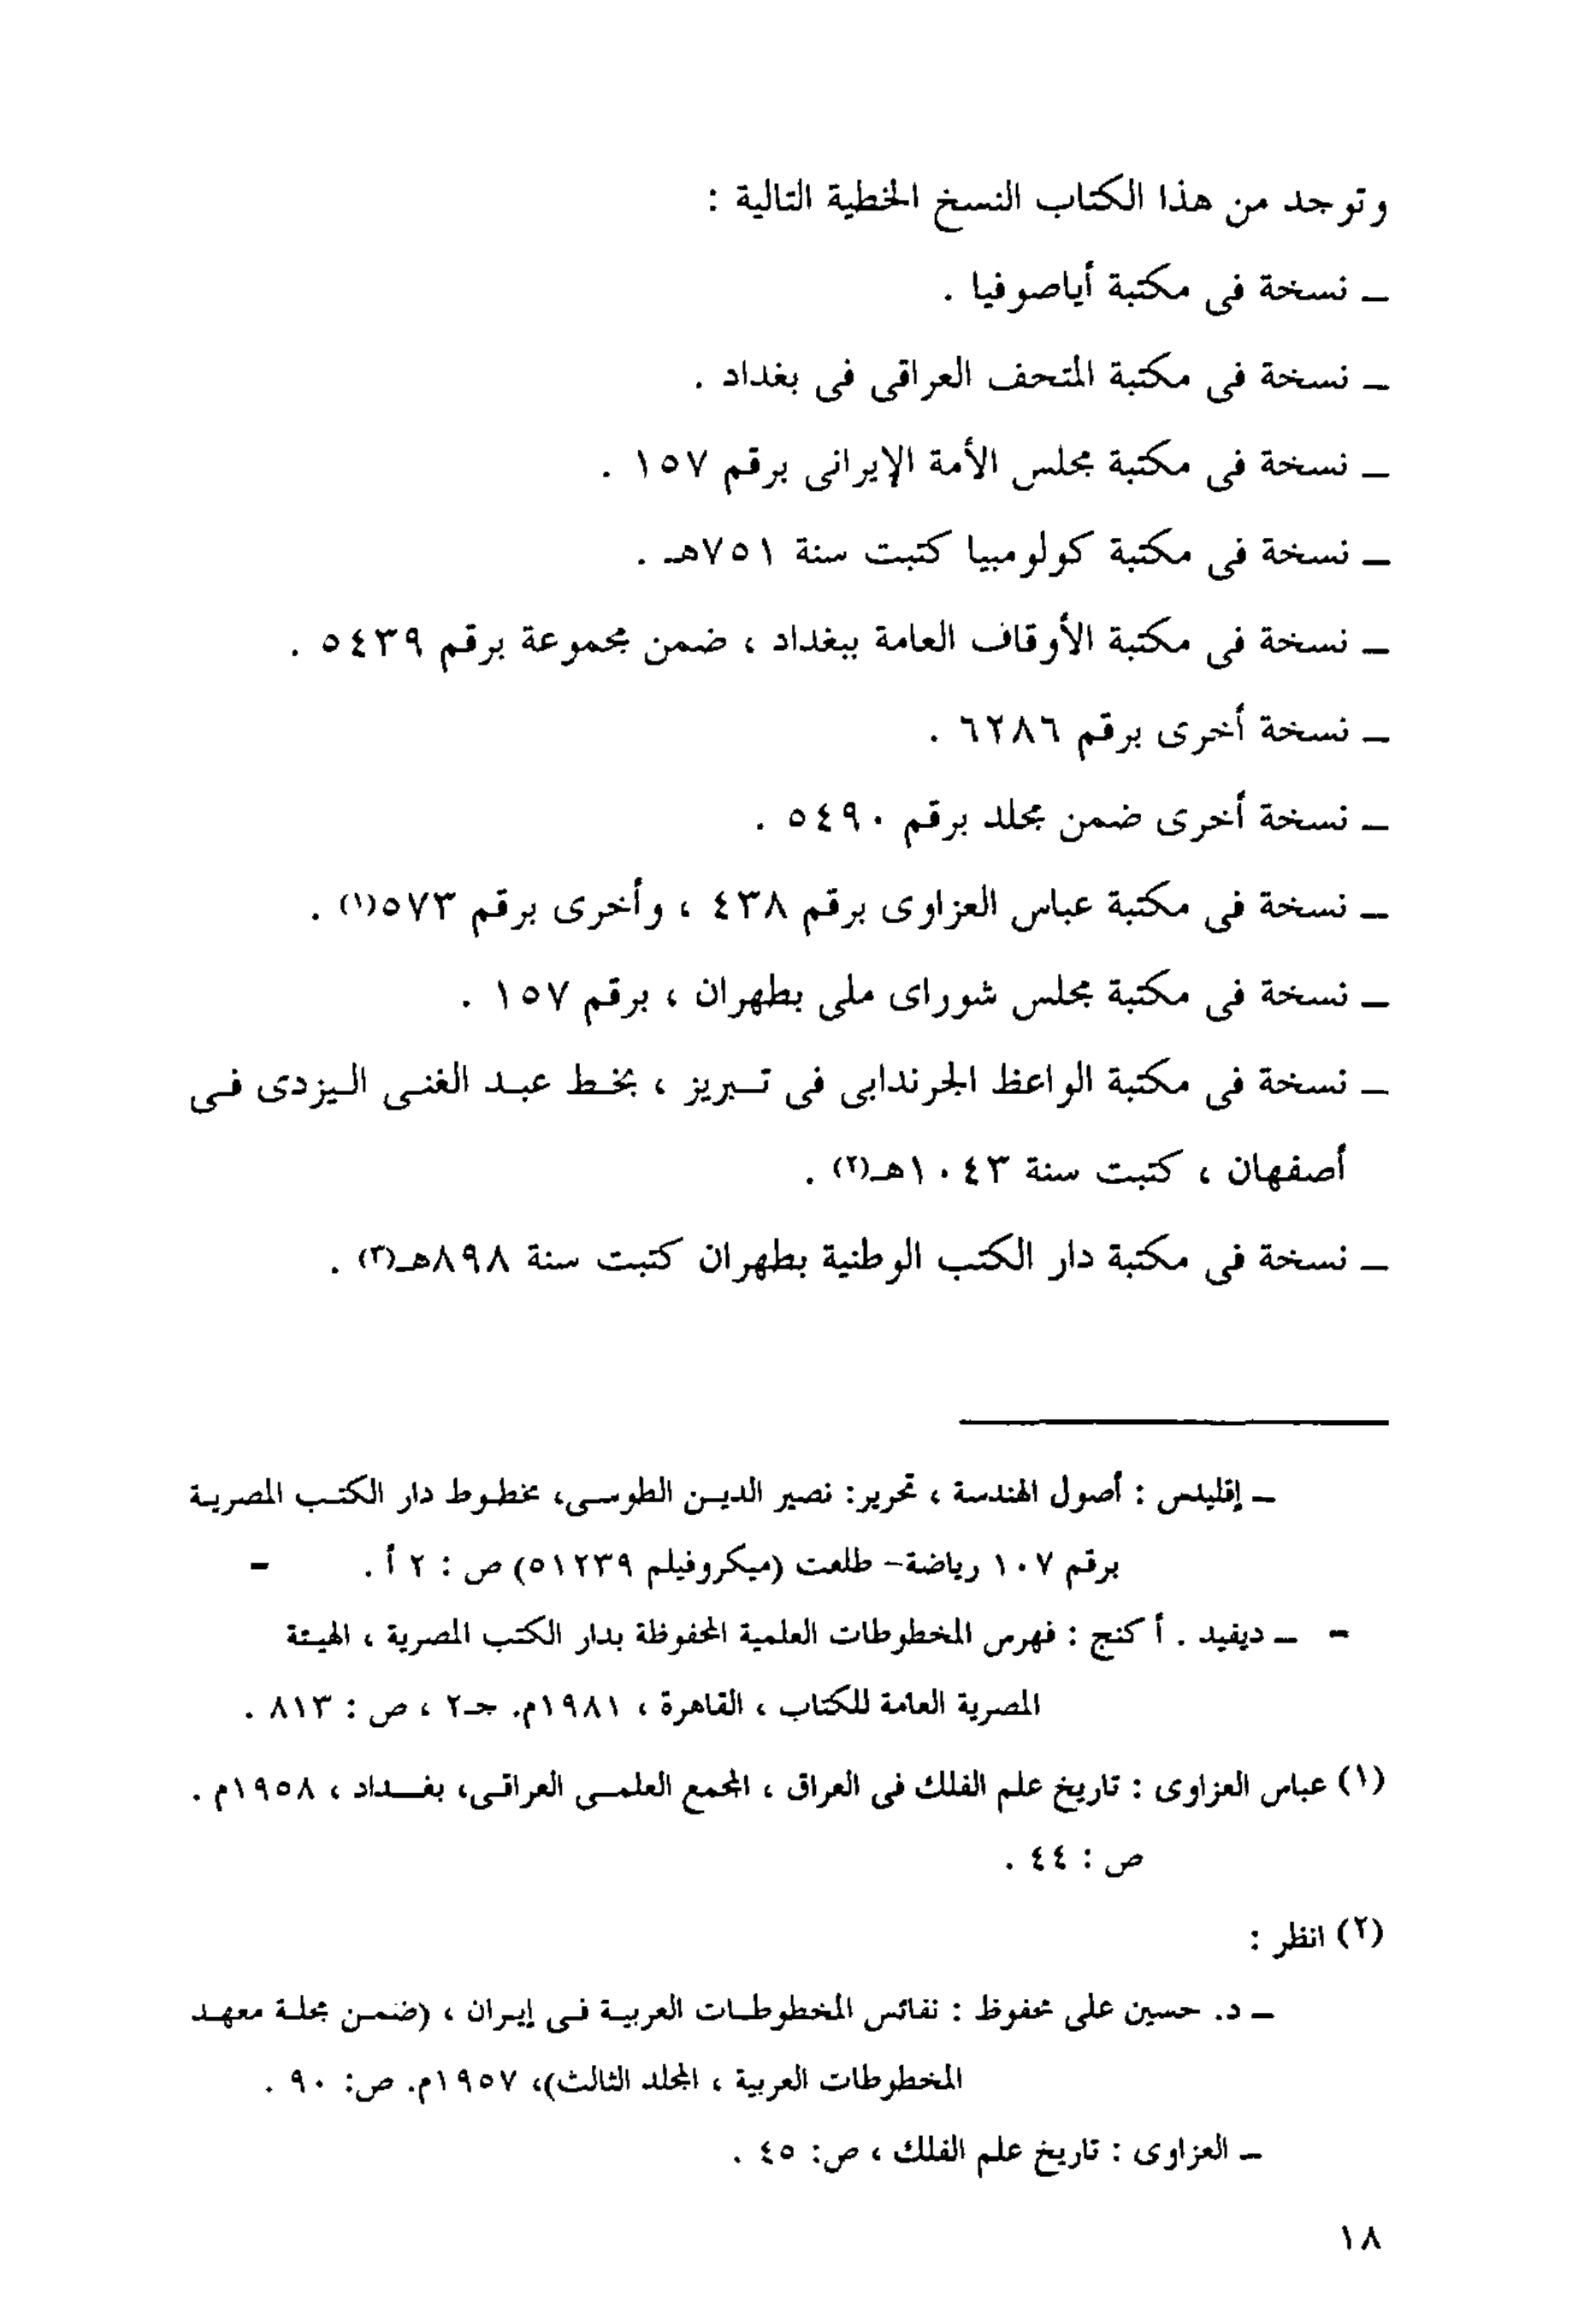 وتوجد من هذا الكتاب النسخ الخطية التالية :
ـ نسخة فى مكتبة أياصوفيا .
ـ نسخة فى مكتبة المتحف العراقى فى بغداد .
ـ نسخة فى مكتبة مجلس الأمة الإيرانى برقم ١٥٧ .
ـ نسخة فى مكتبة كولومبيا كتبت سنة ٧٥١هـ .
ـ نسخة فى مكتبة الأوقاف العامة ببغداد ، ضمن مجموعة برقم ٥٤٣٩ .
ـ نسخة أخرى برقم ٦٢٨٦ .
ـ نسخة أخرى ضمن مجلد برقم ٥٤٩٠ .
ـ نسخة فى مكتبة عباس العزاوى برقم ٤٣٨ ، وأخرى برقم ٥٧٣(١) .
ـ نسخة فى مكتبة مجلس شوراى ملى بطهران ، برقم ١٥٧ .
ـ نسخة فى مكتبة الواعظ الجرندابى فى تـبريز ، بخـط عبـد الغنـى الـيزدى فـى
أصفهان ، كتبت سنة ١٠٤٣هـ(٢) .
ـ نسخة فى مكتبة دار الكتب الوطنية بطهران كتبت سنة ٨٩٨هـ(٣) .
ـ إقليدس : أصول الهندسة ، تحرير: نصير الديـن الطوسـى، مخطـوط دار الكتـب المصريـة
برقم ١٠٧ رياضة- طلعت (ميكروفيلم ٥١٢٣٩) ص : ٢ أ . -
- ـ ديفيد . أ كنج : فهرس المخطوطات العلمية المحفوظة بدار الكتب المصرية ، الهيئة
المصرية العامة للكتاب ، القاهرة ، ١٩٨١م. جـ٢ ، ص : ٨١٣ .
(١) عباس العزاوى : تاريخ علم الفلك فى العراق ، المجمع العلمـى العراقـى، بغـداد ، ١٩٥٨م .
ص : ٤٤ .
(٢) انظر :
ـ د. حسين على محفوظ : نفائس المخطوطـات العربيـة فـى إيـران ، (ضمـن مجلـة معهـد
المخطوطات العربية ، المجلد الثالث)، ١٩٥٧م. ص: ٩٠ .
ـ العزاوى : تاريخ علم الفلك ، ص: ٤٥ .
١٨